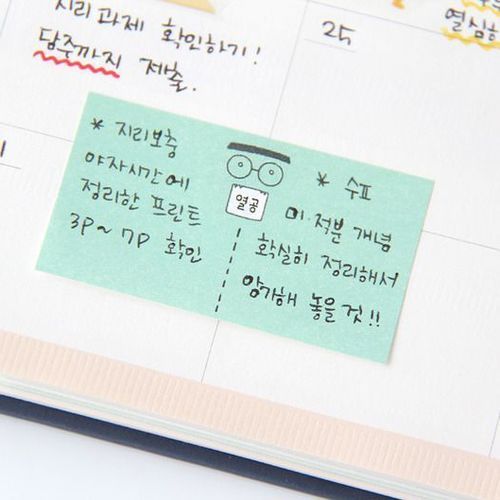 지리과제 확인하기!
담주까지 제출.
25
열심히
* 지리보충
야자시간에
정리한 프린트
3P~7P 확인
열공
* 수표
미·적분 개념
확실히 정리해서
암기해 놓을 것!!